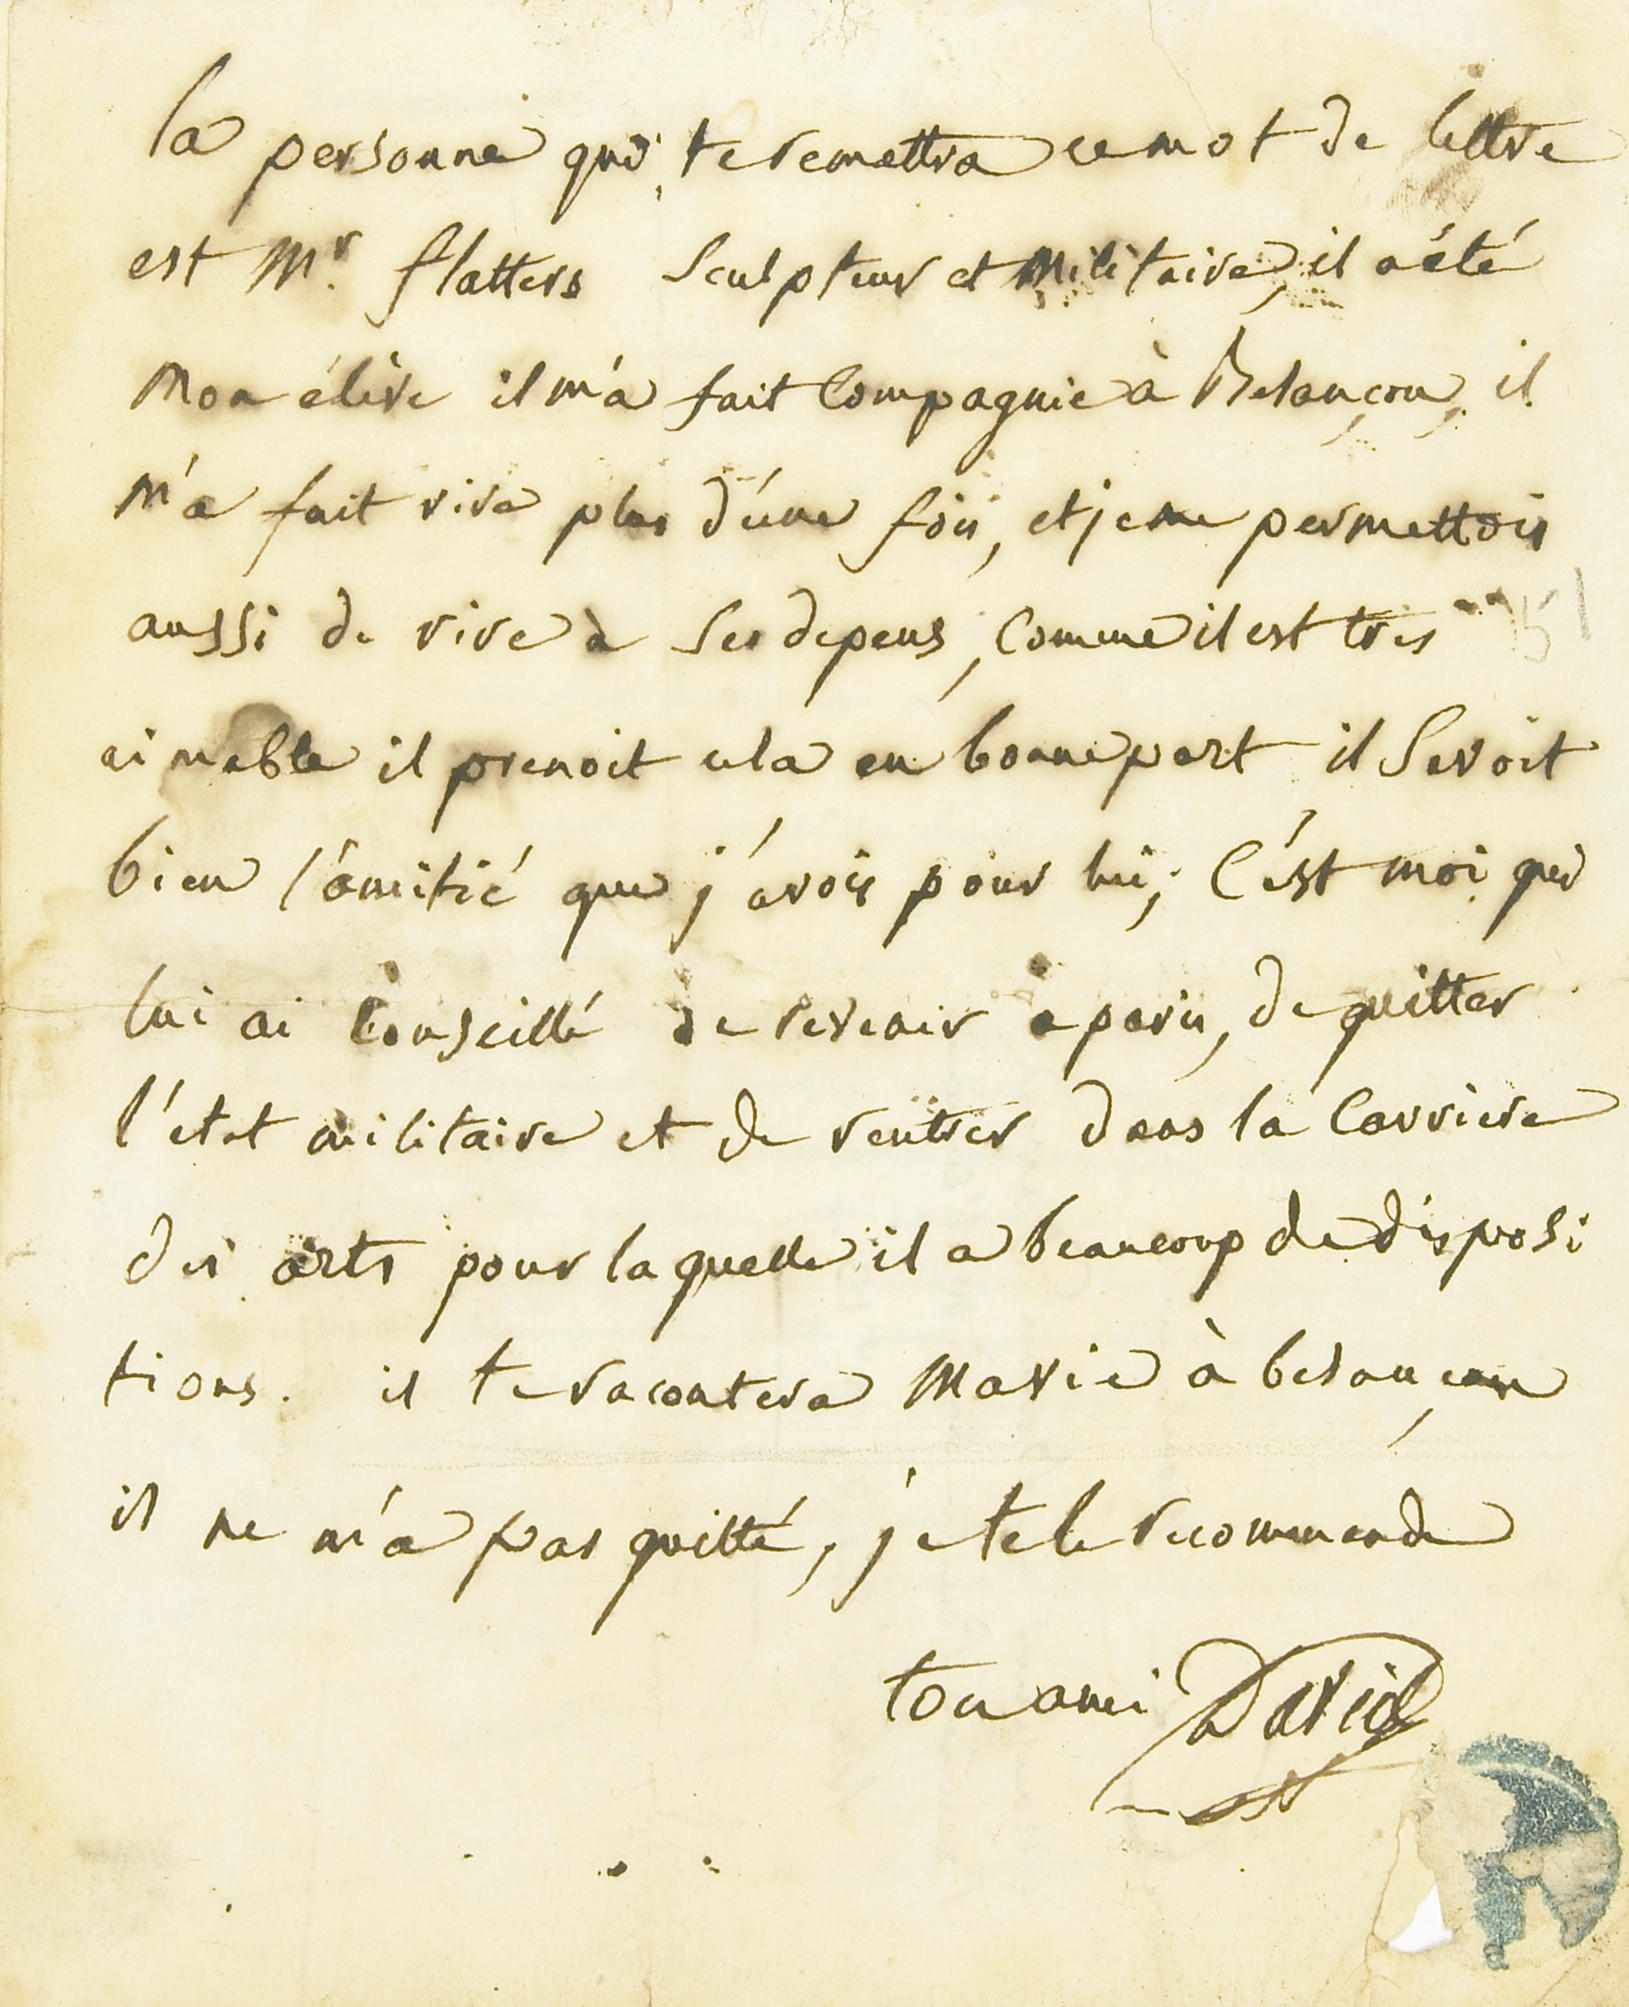 la personne qui te remettra ce mot de lettre
est Mr. flatters Sculpteur et Militaire, il a été
Mon élève il m'a fait Compagnie à Besançon, il
m'a fait rire plus d'une fois, et je me permettois
aussi de rire à Ses depens, Comme il est tres
aimable il prenoit cela en bonne part il Savoit
bien l'amitié que j'avois pour lui; C'est moi qui
lui ai Conseillé de revenir a paris, de quitter
l'etat militaire et de rentrer dans la Carriere
des arts pour laquelle il a beaucoup de disposi
tions. il te racontera Ma vie à besançon
il ne m'a pas quitté, je te le recommande
ton ami David